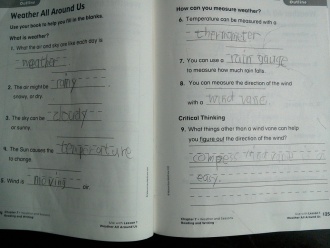 Weather All Around Us
Use your book to help you fill in the blanks.
What is weather?
1. What the air and sky are like each day is
weather
2. The air might be rainy
snowy, or dry.
3. The sky can be cloudy
or sunny
4. The Sun causes the temperature
to change
5. Wind is moving air.
How can you measure weather?
6. Temperature can be measured with a
7. You can use a rain gauge
to measure how much rain falls.
8. You can measure the direction of the wind
with a wind vane
Critical Thinking
9. What things other than a wind vane can help
you figure out the direction of the wind?
Weather All Around Us
Reading and Writing
Weather All Around Us